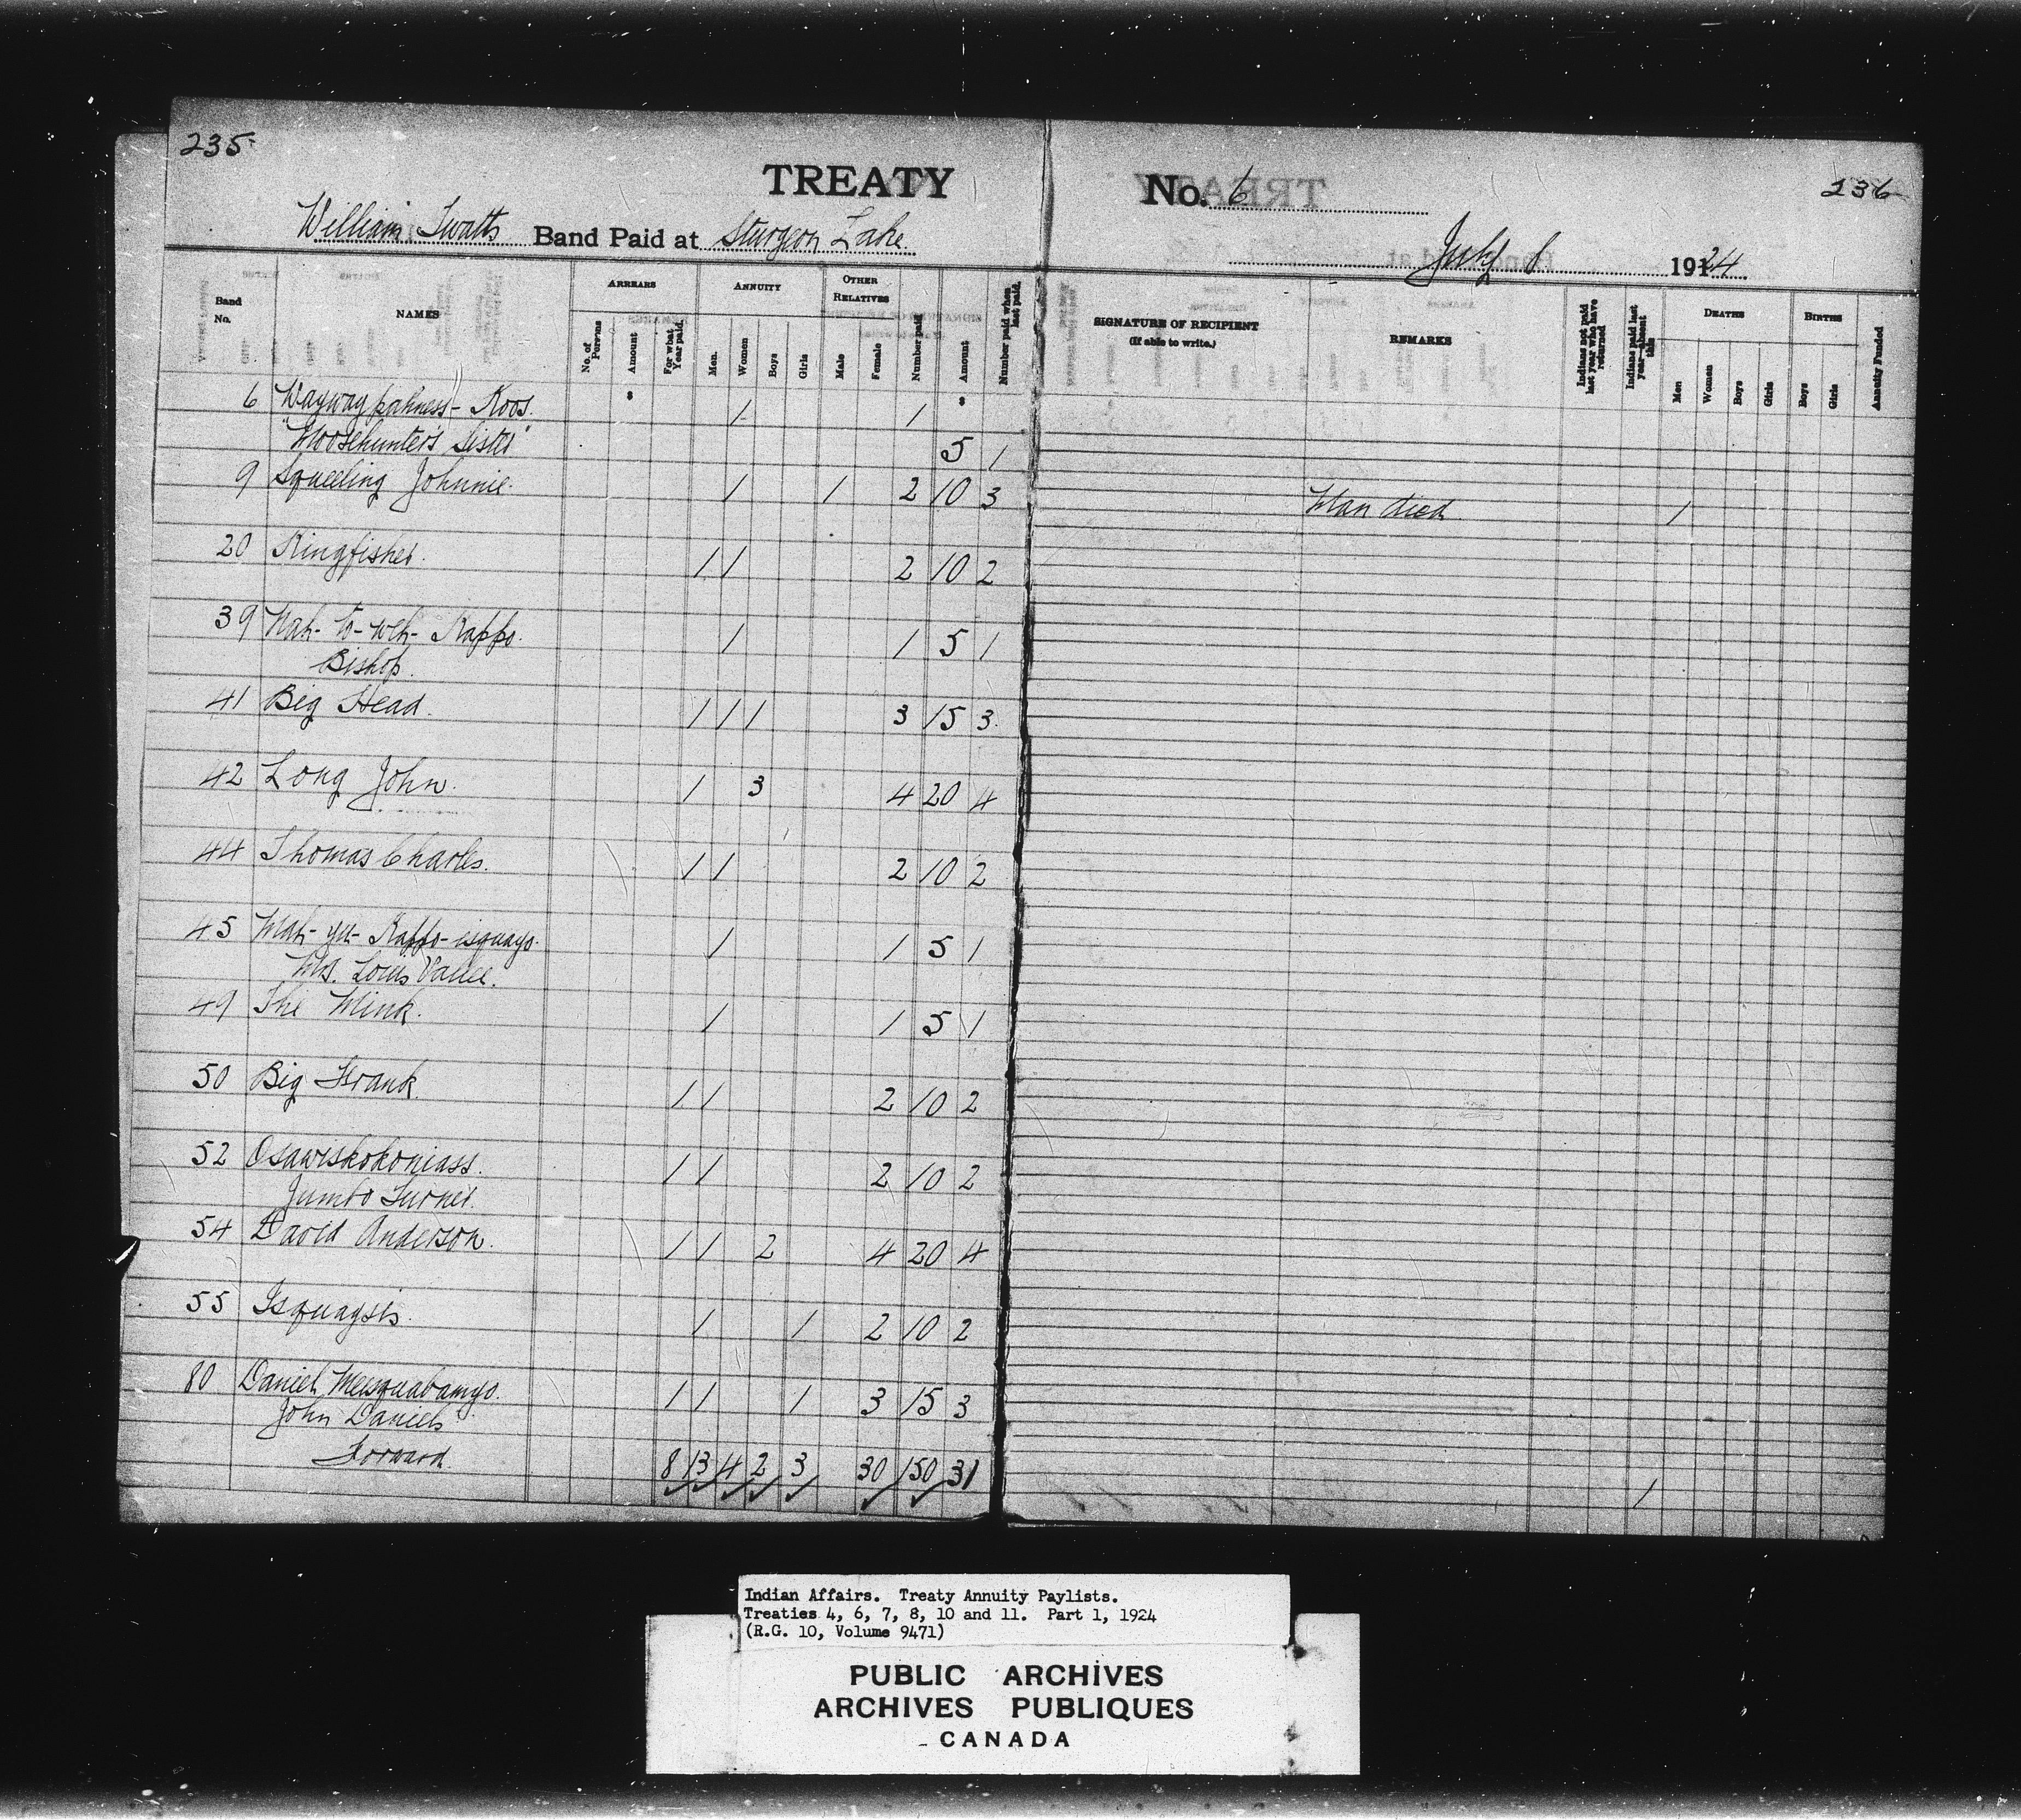 235
TREATY
No. 6
236
William Twatts Band Paid at Sturgeon Lake
July 8 1924
Band No.
NAMES
ARREARS
No. of Persons
Amount
For what Year paid.
ANNUITY
Men.
Women
Boys
Girls
OTHER RELATIVES
Male
Female
Number paid
Amount
Number paid when last paid.
SIGNATURE OF RECIPIENT
(If able to write.)
REMARKS
Indians not paid last year who have returned
Indians paid last year—absent this
DEATHS
Men
Women
Boys
Girls
BIRTHS
Boys
Girls
Annuity Funded
6 Wayway pahness - Koos. 1 1
"Moosehunter's Sister" 5 1
9 Squeeling Johnnie. 1 1 2 10 3 Man died 1
20 Kingfisher. 1 1 2 10 2
39 Nah-to-weh-Kappo. 1 1 5 1
Bishop.
41 Big Head. 1 1 1 3 15 3.
42 Long John. 1 3 4 20 4
44 Thomas Charles. 1 1 2 10 2
45 Mah-yu-Kappo-esquayo. 1 1 5 1
Mrs. Louis
49 The Mink. 1 1 5 1
50 Big Frank. 1 1 2 10 2
52 Osawiskokoniass. 1 1 2 10 2
Jumbo Turner.
54 David Anderson. 1 1 2 4 20 4
55 Isquaysis. 1 1 2 10 2
80 Daniel 1 1 1 3 15 3
John Daniels
Forward. 8 13 4 2 3 30 150 31 1
Indian Affairs. Treaty Annuity Paylists.
Treaties 4, 6, 7, 8, 10 and 11. Part 1, 1924
(R.G. 10, Volume 9471)
PUBLIC ARCHIVES
ARCHIVES PUBLIQUES
CANADA